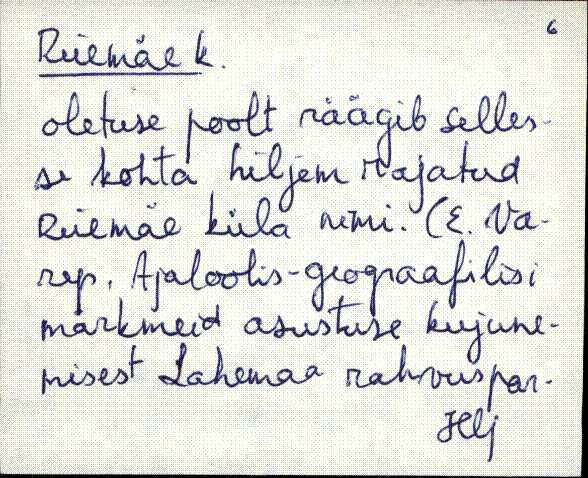 6
Riiemäe k.
oletuse poolt räägib selles-
se kohta hiljem rajatud
Riiemäe küla nimi. (E. Va-
rep. Ajaloolis-geograafilisi
märkmeid asustuse kujune-
misest Lahemaa rahvuspar-
Hlj